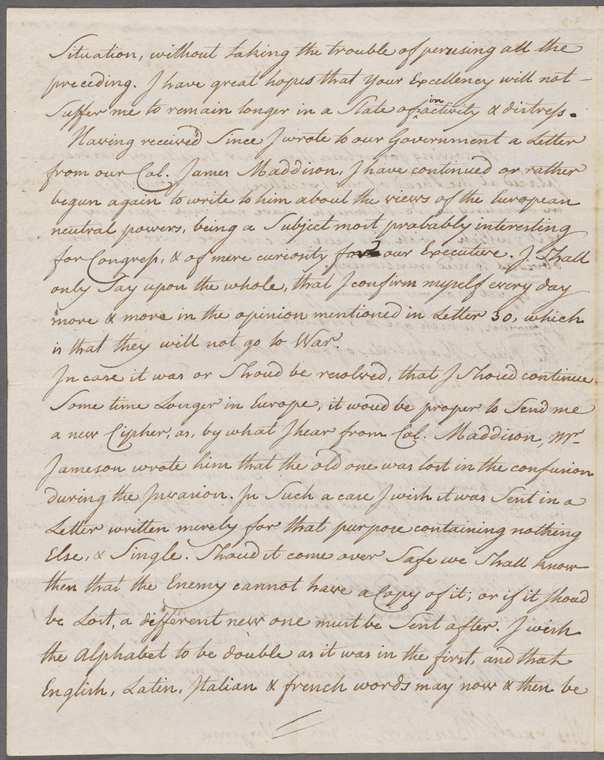 Situation, without taking the trouble of perusing all the
preceding. I have great hopes that your Excellency will not
Suffer me to remain longer in a State of inactivity & distress.
Having received Since I wrote to our Government a Letter
from our Col. James Maddison, I have continued or rather
begun again to write to him about the views of the European
neutral powers, being a Subject most probably interesting
for Congress, & of mere curiosity for our Executive. I Shall
only Say upon the whole, that I confirm myself every day
more & more in the opinion mentioned in Letter 30, which
is that they will not go to War.
In case it was or Shoud be resolved, that I Shoud continue
Some time Longer in Europe, it woud be proper to Send me
a new Cipher, as, by what I hear from Col. Maddison, Mr.
Jameson wrote him that the old one was lost in the confusion
during the Invasion. In Such a case I wish it was Sent in a
Letter written merely for that purpose containing nothing
Else, & Single. Shoud it come over Safe we Shall know
then that the Enemy cannot have a Copy of it; or if it Shoud
be Lost, a different new one must be Sent after. I wish
the alphabet to be double as it was in the first, and that
English, Latin, Italian & french words may now & then be